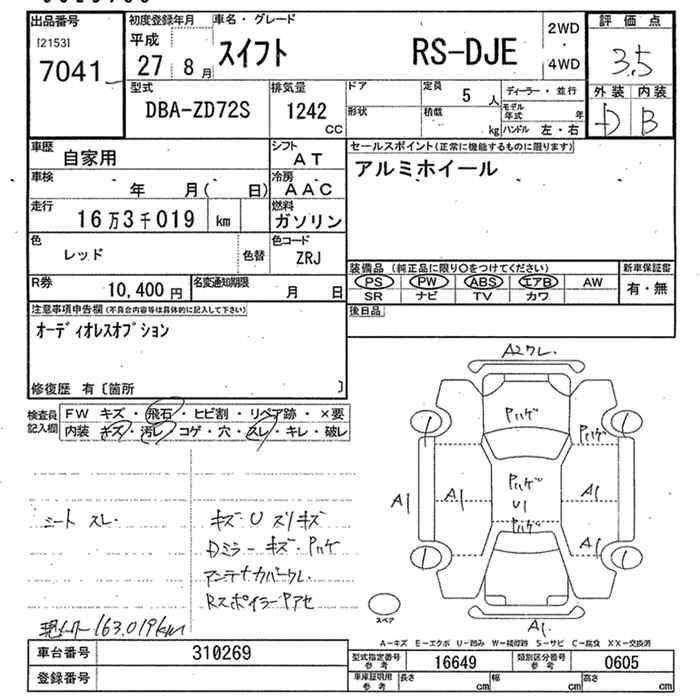 出品番号
[2153]
7041
初度登録年月
平成
27年 8月
車名・グレード
スイフト RS-DJE
2WD
・
4WD
評価点
3.5
外装 内装
D B
型式
DBA-ZD72S
排気量
1242
CC
ドア
形状
定員
5 人
積載
kg
ディーラー・並行
モデル年式 年
ハンドル 左・右
車歴
自家用
シフト
AT
車検
年 月( 日)
冷房
AAC
走行
16万3千019 km
燃料
ガソリン
色
レッド
色替
色コード
ZRJ
R券
10,400円
名変通知期限
月 日
セールスポイント(正常に機能するものに限ります)
アルミホイール
装備品 (純正品に限り○をつけてください)
PS PW ABS エアB AW
SR ナビ TV カワ
新車保証書
有・無
後日品
注意事項申告欄(不具合内容等は具体的に記入して下さい)
オーディオレスオプション
修復歴 有〔箇所 〕
検査員記入欄
FW キズ・飛石・ヒビ割・リペア跡・×要
内装 キズ・汚レ・コゲ・穴・スレ・キレ・破レ
シート スレ
キズ U スリキズ
Dミラーキズ・Pハゲ
アンテナカバーワレ
RスポイラーPアセ
現メーター163,019km
A2ワレ
Pハゲ
Pハゲ
Pハゲ
U1
Pハゲ
A1
A1
A1
A1
A1
A1
スペア
A-キズ E-エクボ U-凹み W-補修跡 S-サビ C-腐食 XX-交換済
車台番号
310269
登録番号
型式指定番号
参考
16649
類別区分番号
参考
0605
車庫証明用
参考
長さ cm
幅 cm
高さ cm